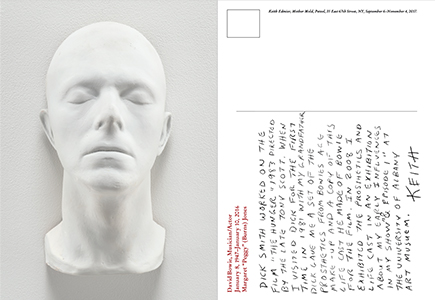 Keith Edmier, Mother Mold, Petzel, 35 East 67th Street, NY, September 6–November 4, 2017
David Bowie, Musician/Actor
January 8, 1947–January 10, 2016
Margaret "Peggy" (Burns) Jones
DICK SMITH WORKED ON THE
FILM "THE HUNGER" 1983 DIRECTED
BY THE LATE TONY SCOTT. WHEN
I VISITED DICK FOR THE FIRST
TIME IN 1981 WITH MY GRANDFATHER
DICK GAVE ME A SET OF THE
PROSTHETICS FROM BOWIES AGE
MAKE UP AND A COPY OF THIS
LIFE CAST HE MADE OF BOWIE
FOR THE FILM. IN 2008 I
EXHIBITED THE PROSTHETICS AND
LIFE CAST IN AN EXHIBITION
ABOUT MY EARLY INFLUENCES
IN MY SHOW "EPISODE I" AT
THE UNIVERSITY OF ALBANY
ART MUSUEM.
KEITH